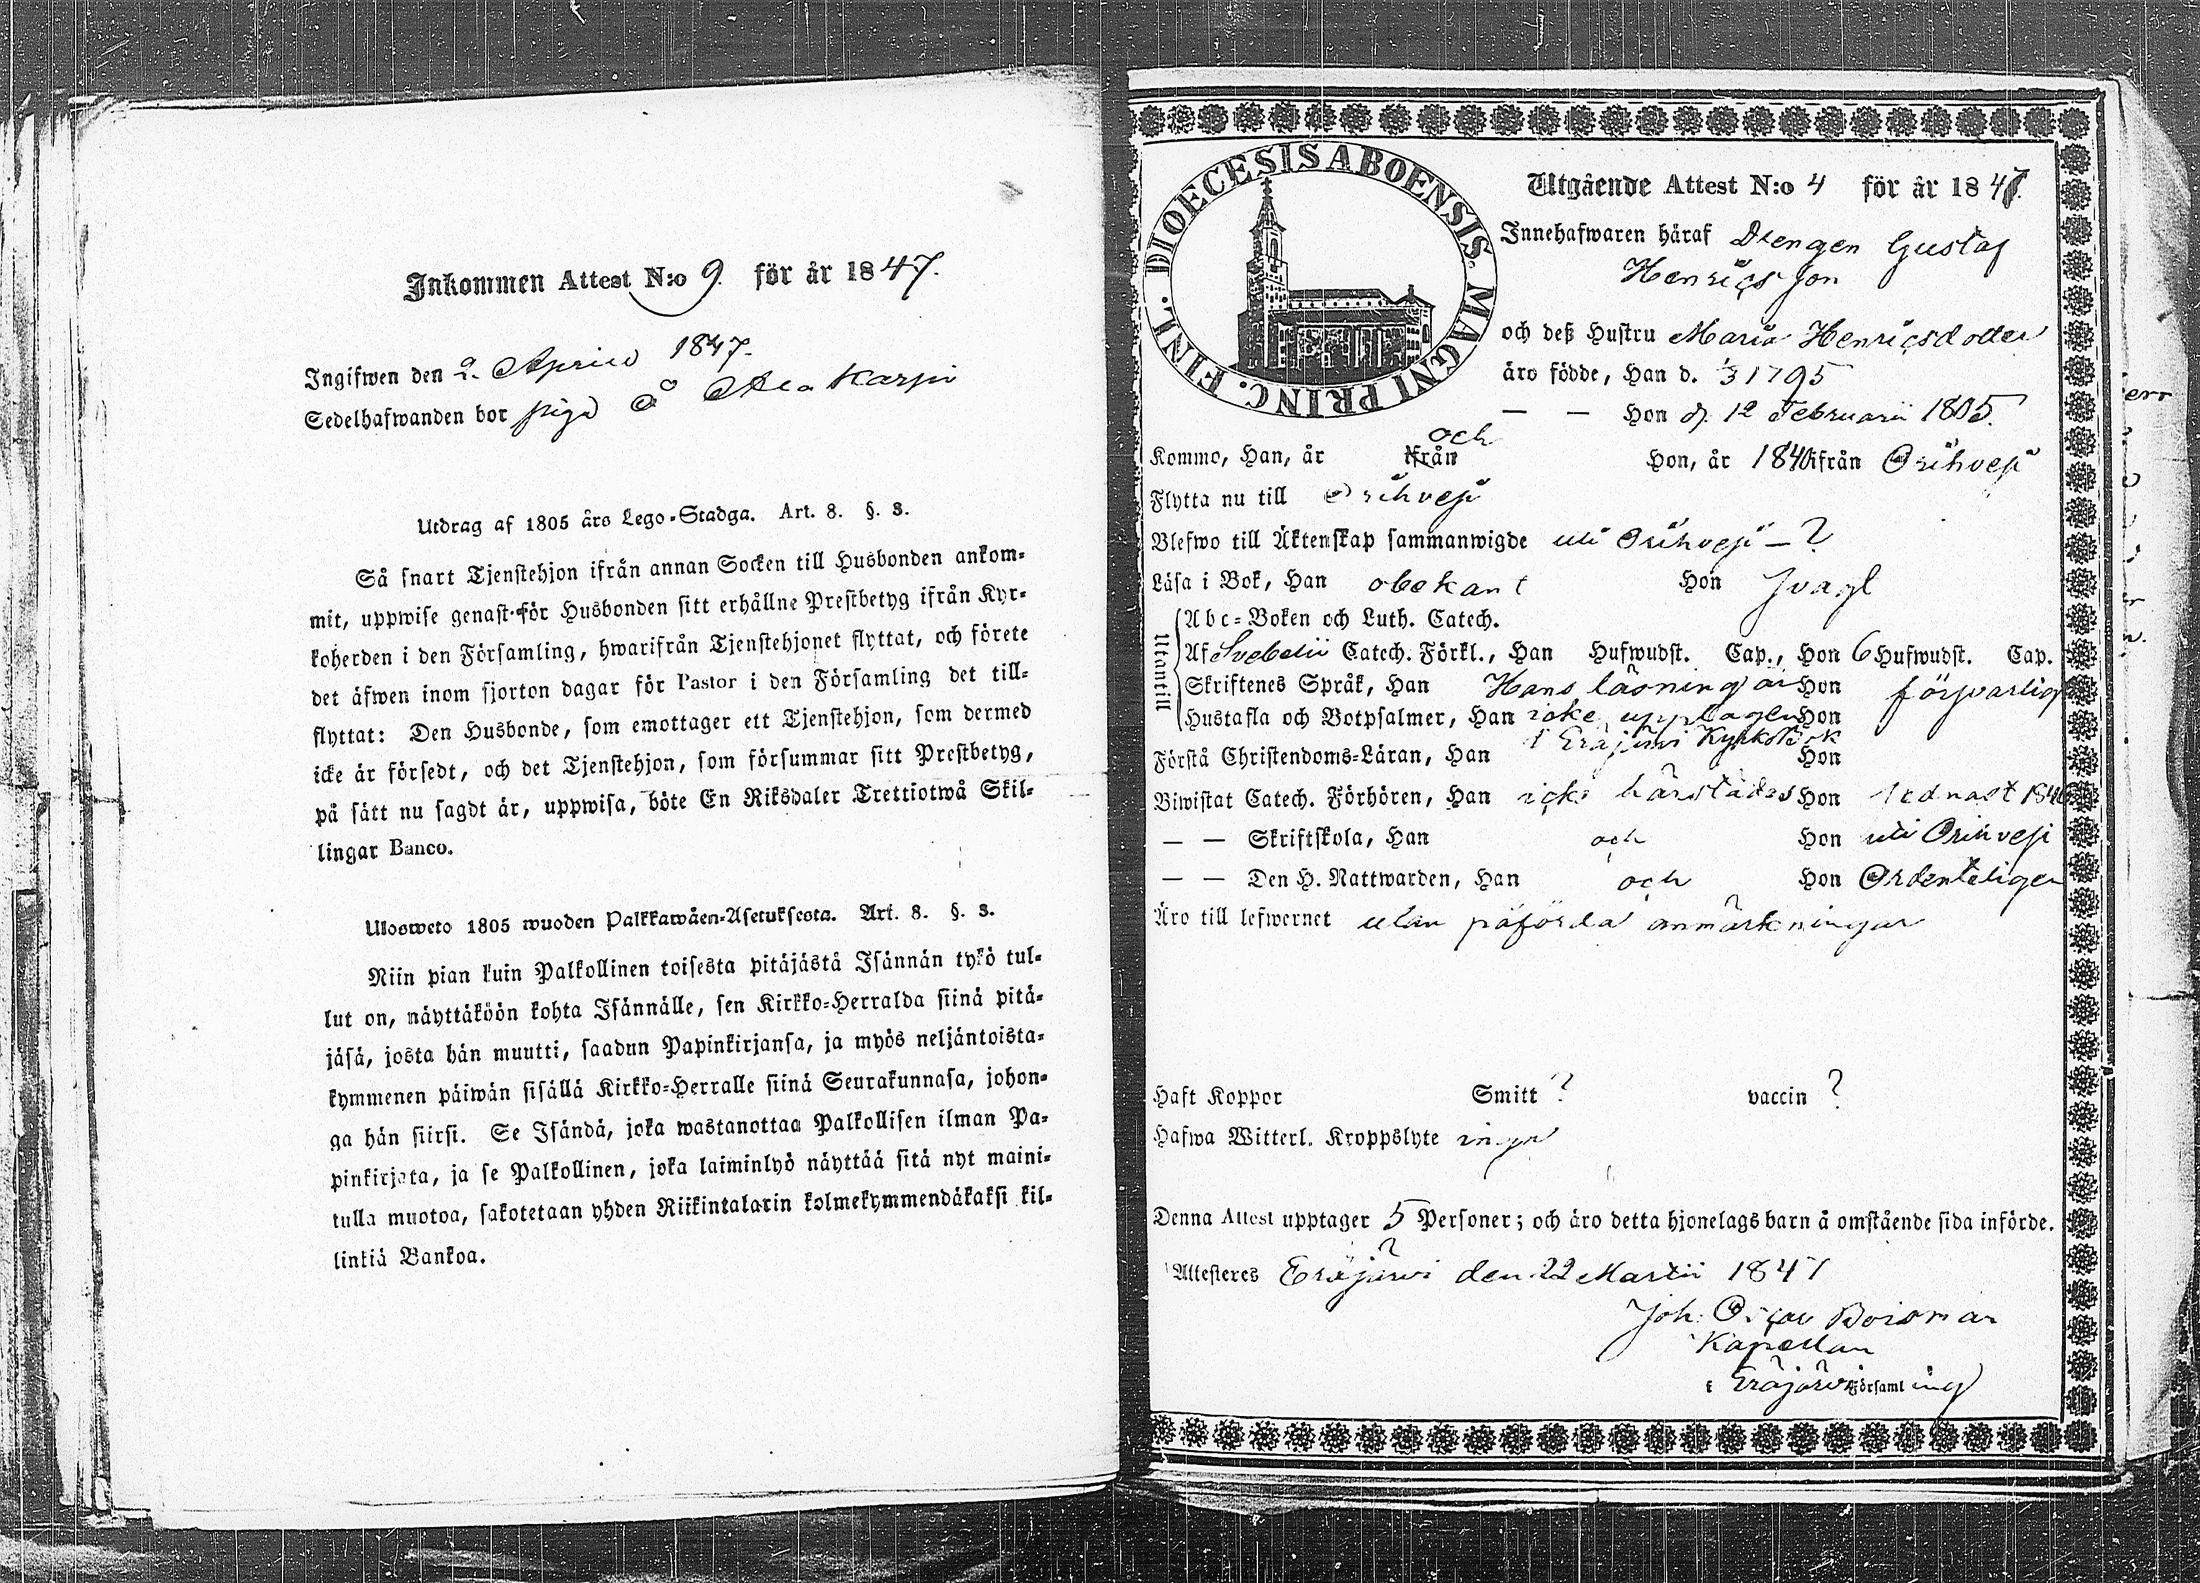 Inkommen Attest N:o 9 för år 1847.
Ingifwen den 2. April 1847.
Sedelhafwanden bor piga å Ala Karpi
Utdrag af 1805 års Lego-Stadga. Art. 8. §. 3.
Så snart Tjenstehjon ifrån annan Socken till Husbonden ankom-
mit, uppwise genast för Husbonden sitt erhållne Prestbetyg ifrån Kyr-
koherden i den Församling, hwarifrån Tjenstehjonet flyttat, och förete
det äfwen inom fjorton dagar för Pastor i den Församling det till-
flyttat: Den Husbonde, som emottager ett Tjenstehjon, som dermed
icke är försedt, och det Tjenstehjon, som försummar sitt Prestbetyg,
på sätt nu sagdt är, uppwisa, böte En Riksdaler Trettiotwå Skil-
lingar Banco.
Ulosweto 1805 wuoden Palkkawäen-Asetuksesta. Art. 8. §. 3.
Niin pian kuin Palkollinen toisesta pitäjästä Isännän tykö tul-
lut on, näyttäköön kohta Isännälle, sen Kirkko-Herralda siinä pitä-
jäsä, josta hän muutti, saadun Papinkirjansa, ja myös neljäntoista-
kymmenen päiwän sisällä Kirkko-Herralle siinä Seurakunnasa, johon-
ga hän siirsi. Se Isändä, joka wastanottaa Palkollisen ilman Pa-
pinkirjata, ja se Palkollinen, joka laiminlyö näyttää sitä nyt maini-
tulla muotoa, sakotetaan yhden Riikintalarin kolmekymmendäkaksi kil-
linkiä Bankoa.
DIOECESIS ABOENSIS. MAGNI PRINC. FINL.
Utgående Attest N:o 4 för år 1847.
Innehafwaren häraf Drengen Gustaf
Henricsson
och deß Hustru Maria Henricsdotter
äro födde, Han d. 1/3 1795
— — Hon d. 12 Februarii 1805.
Kommo, Han, år ifrån och Hon, år 1840 ifrån Orihvesi
Flytta nu till Orihvesi
Blefwo till Äktenskap sammanwigde uti Orihvesi – ?
Läsa i Bok, Han obekant Hon svagt
Utantill
Abc-Boken och Luth. Catech.
Af Svebelii Catech. Förkl., Han Hufwudst. Cap., Hon 6 Hufwudst. Cap.
Skriftenes Språk, Han Hans läsning är Hon försvarlig
Hustafla och Botpsalmer, Han icke upptagen Hon
i Eräjärvi Kyrkobok
Förstå Christendoms-Läran, Han Hon
Biwistat Catech. Förhören, Han icke härstädes Hon sednast 1846
— — Skriftskola, Han och Hon uti Orihvesi
— — Den H. Nattwarden, Han och Hon Ordenteligen
Äro till lefwernet utan påförda anmärkningar
Haft Koppor Smitt ? vaccin ?
Hafwa Witterl. Kroppslyte inga
Denna Attest upptager 5 Personer; och äro detta hjonelags barn å omstående sida införde.
Attesteres Eräjärvi den 22 Martii 1847
Joh. Oscar Boisman
Kapellan
i Eräjärvi Församling